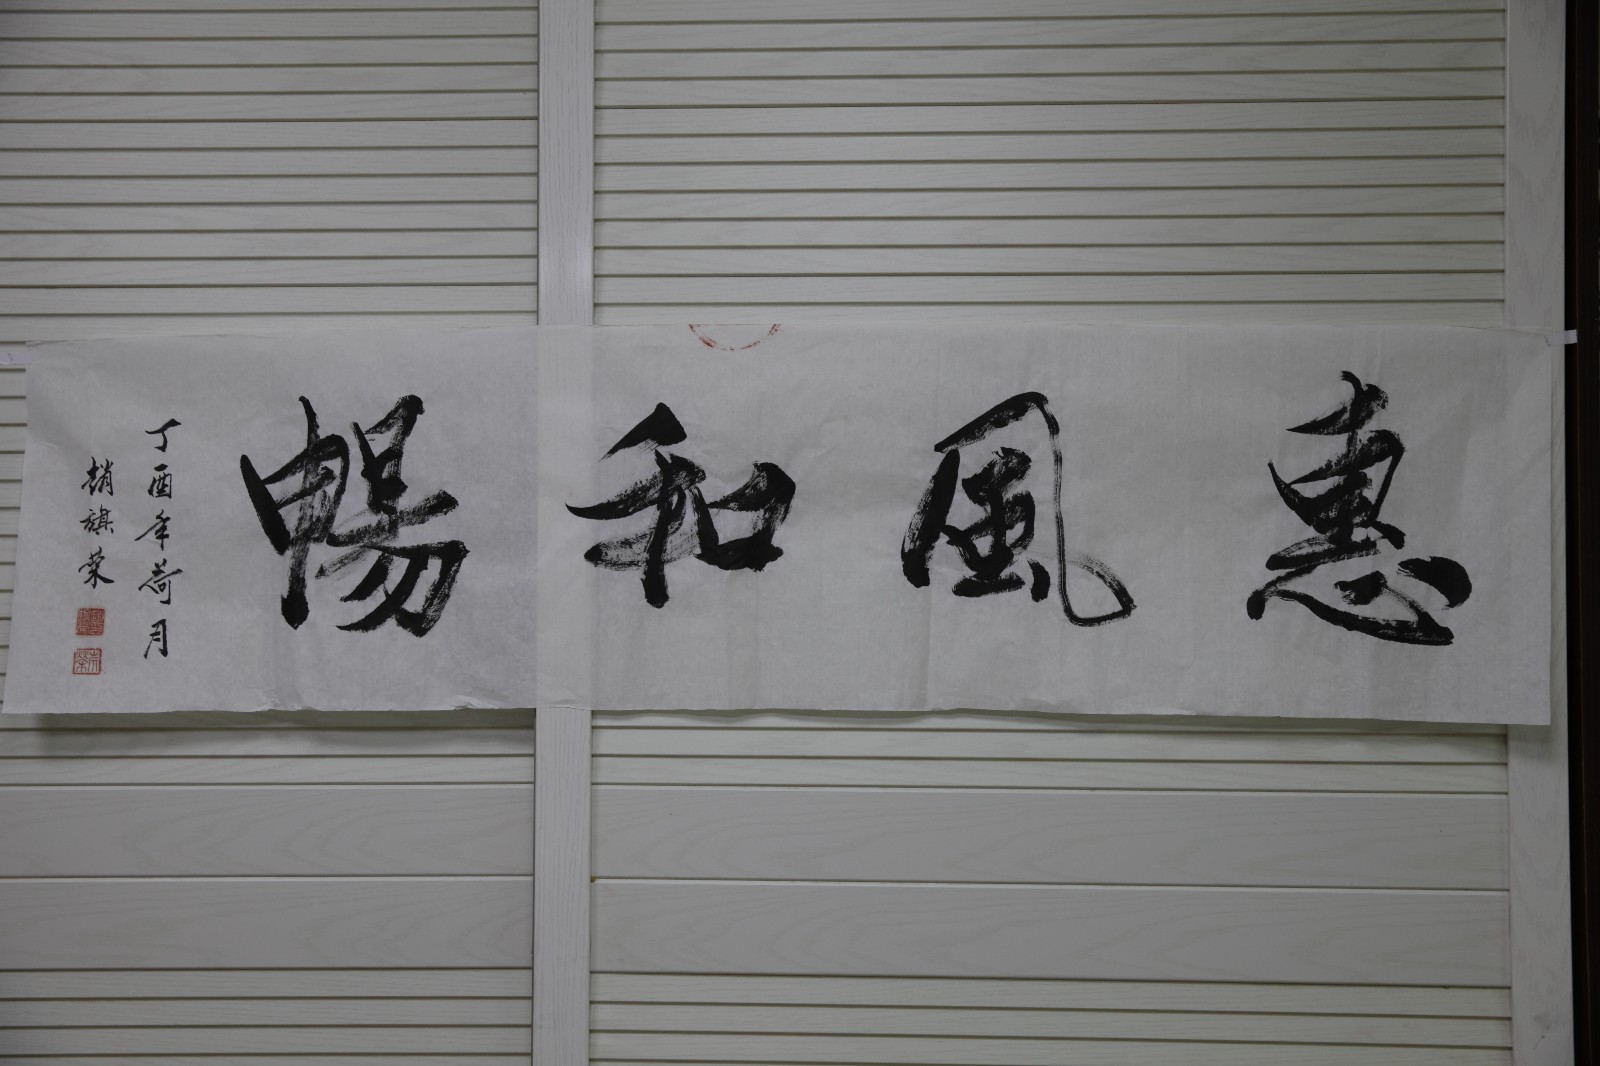 惠風和暢
丁酉年荷月
趙旗榮